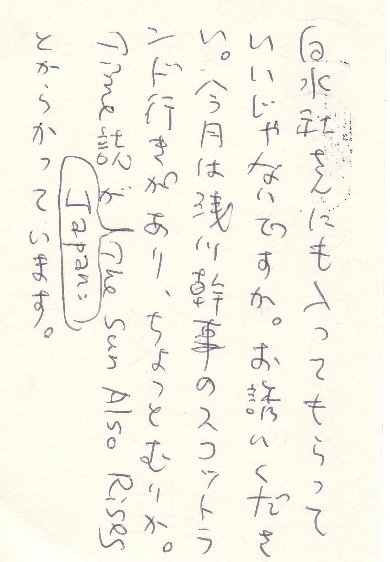 白水社さんにも入ってもらって
いいじゃないですか。お誘いくださ
い。今月は浅川幹事のスコットラ
ンド行きがあり、ちょっとむりか。
Time誌も The Sun Also Rises
Japan:
とからかっています。